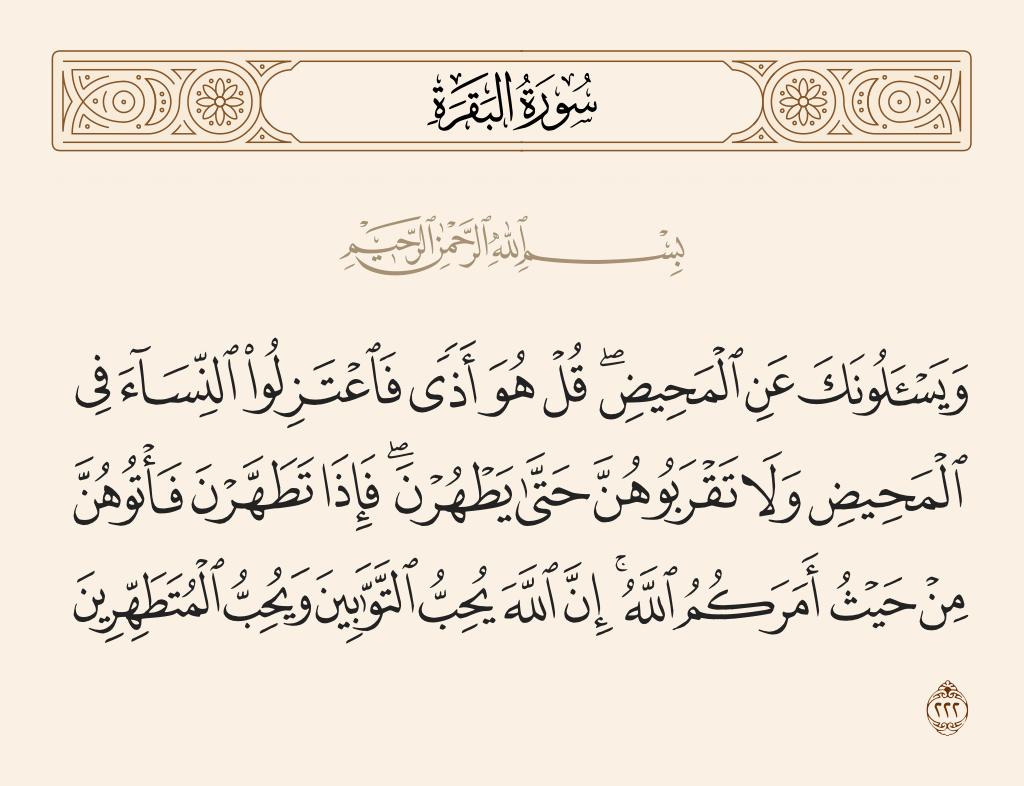 سُورَةُ الْبَقَرَةِ
بِسْمِ ٱللَّهِ ٱلرَّحْمَٰنِ ٱلرَّحِيمِ
وَيَسْـَٔلُونَكَ عَنِ ٱلْمَحِيضِ ۖ قُلْ هُوَ أَذًى فَٱعْتَزِلُوا۟ ٱلنِّسَآءَ فِى
ٱلْمَحِيضِ وَلَا تَقْرَبُوهُنَّ حَتَّىٰ يَطْهُرْنَ ۖ فَإِذَا تَطَهَّرْنَ فَأْتُوهُنَّ
مِنْ حَيْثُ أَمَرَكُمُ ٱللَّهُ ۚ إِنَّ ٱللَّهَ يُحِبُّ ٱلتَّوَّٰبِينَ وَيُحِبُّ ٱلْمُتَطَهِّرِينَ
٢٢٢